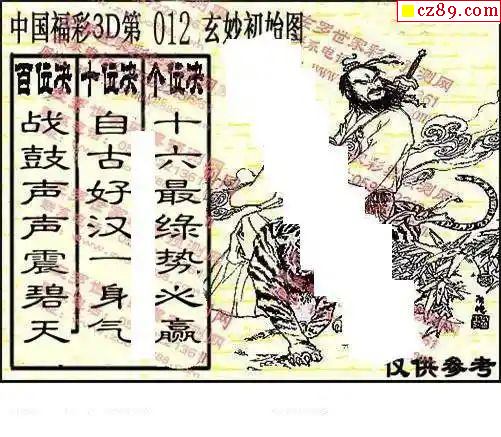 cz89.com
中国福彩3D第 012 玄妙初始图
百位决 十位决 个位决
战鼓声声震碧天
自古好汉一身气
十六最绿势必赢
仅供参考